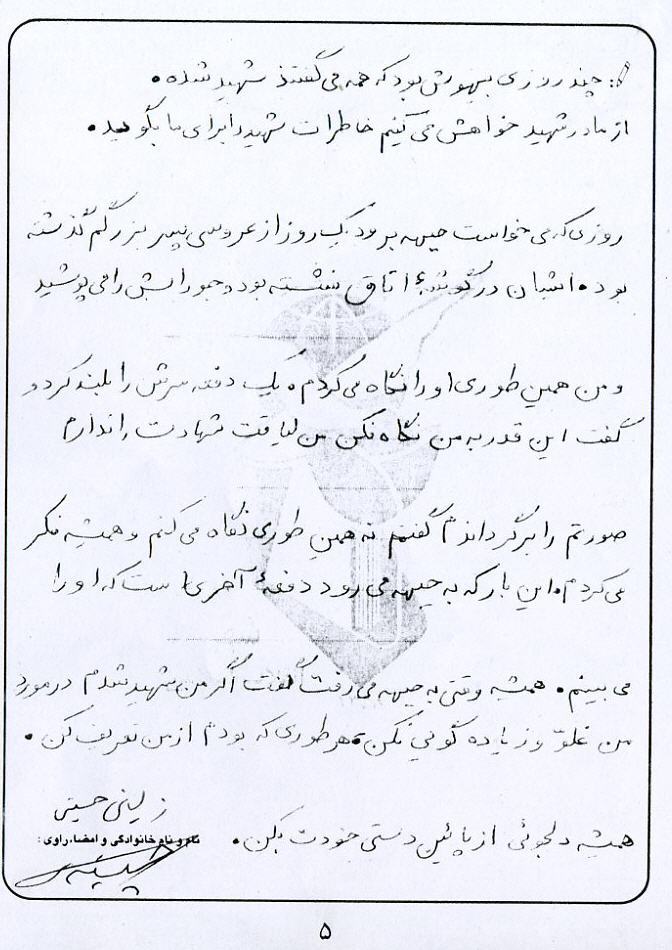 ک: چند روزی بیهوش بود که همه می گفتند شهید شده.
از مادر شهید خواهش می کنیم خاطرات شهید را برای ما بگوید.
روزی که می خواست جبهه برود یک روز از عروسی پسر بزرگم گذشته
بود. ایشان در گوشهٔ اتاق نشسته بود و جورابش را می پوشید
و من همین طوری او را نگاه می کردم. یک دفعه سرش را بلند کرد و
گفت این قدر به من نگاه نکن من لیاقت شهادت را ندارم
صورتم را برگرداندم گفتم نه همین طوری نگاه می کنم و همیشه فکر
می کردم. این بار که به جبهه می رود دفعهٔ آخری است که او را
می بینم. همیشه وقتی به جبهه می رفت گفت اگر من شهید شدم در مورد
من غلوّ و زیاده گویی نکن. هر طوری که بودم از من تعریف کن.
همیشه دلجوئی از پائین دستی خودت بکن.
حسینی
نام و نام خانوادگی و امضاء راوی:
۵